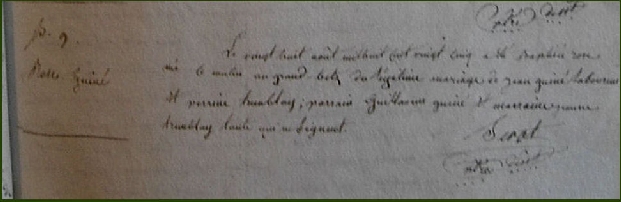 p. 9
Rose guiné
Le vingt huit août mil huit cent vingt cinq a été baptisée rose
née ce matin au grand-bois du légitime mariage de jean guiné laboureur
et perrine tremblay; parrain guillaume guiné et marraine jeanne
tremblay tante qui ne signent.